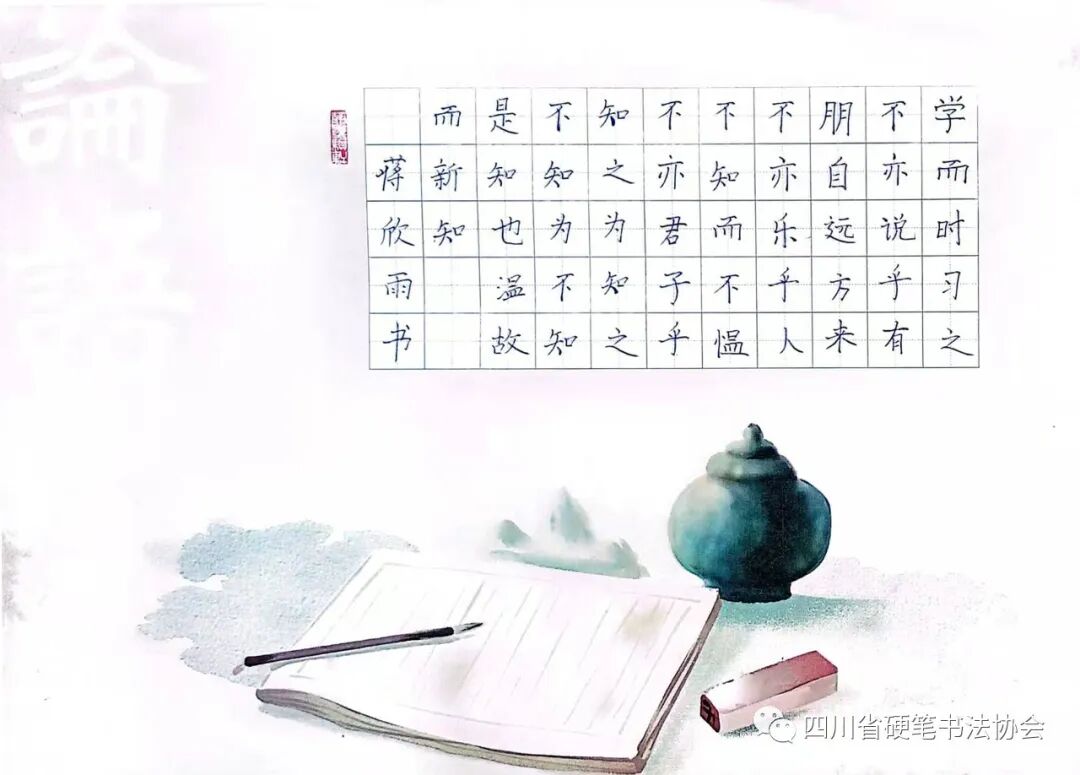 学而时习之
不亦说乎有
朋自远方来
不亦乐乎人
不知而不愠
不亦君子乎
知之为知之
不知为不知
是知也温故
而新知
蒋欣雨书
論語
四川省硬笔书法协会